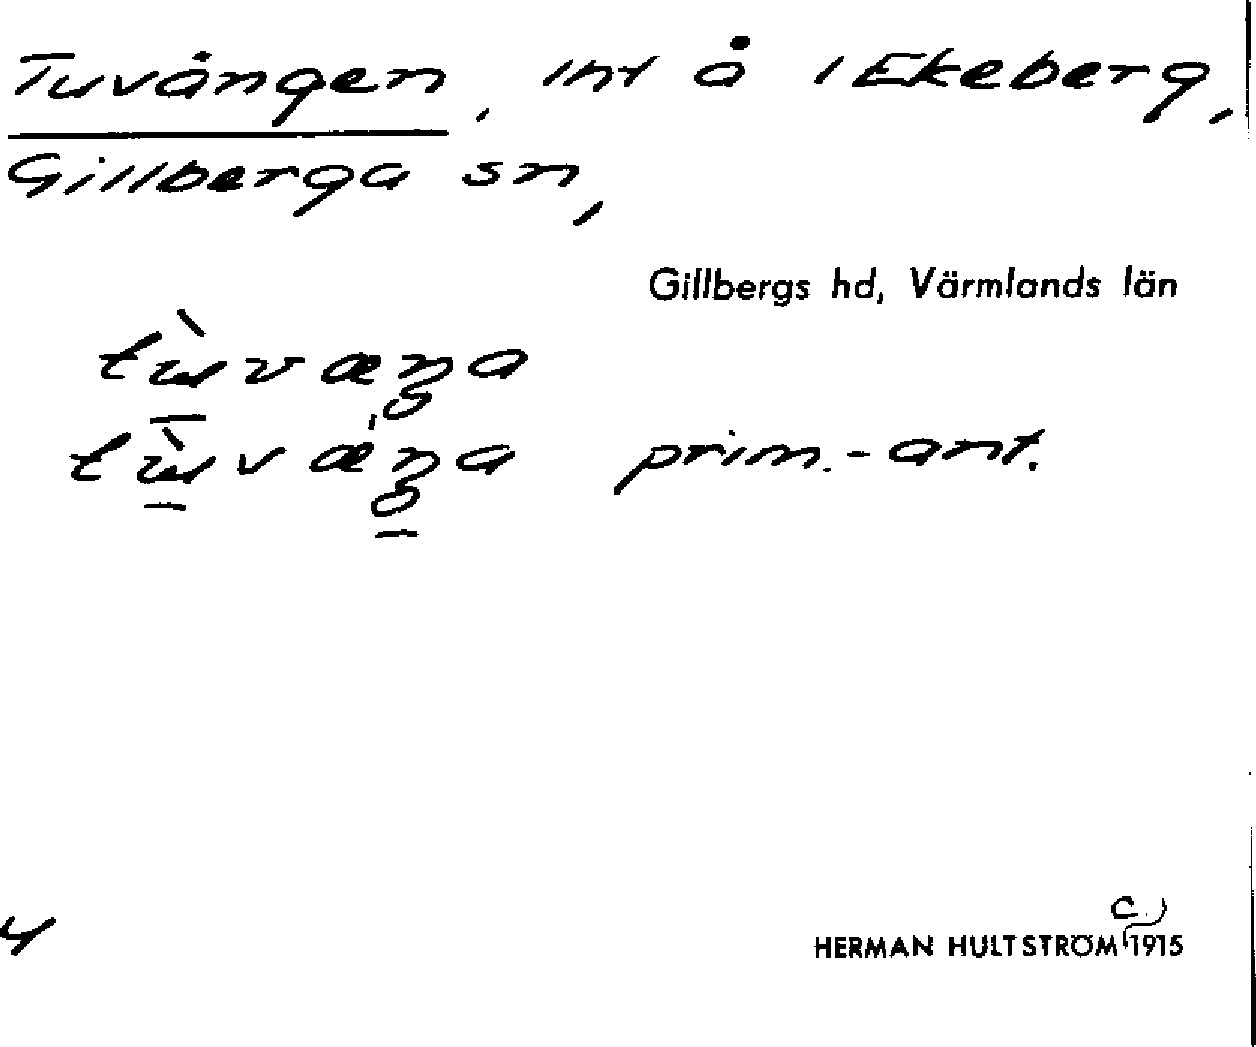 Tuvängen, int å i Ekeberg,
Gillberga sn,
Gillbergs hd, Värmlands län
tùvæŋa
tùvæ̍ŋa prim.-ant.
4
c.)
HERMAN HULTSTRÖM 1915